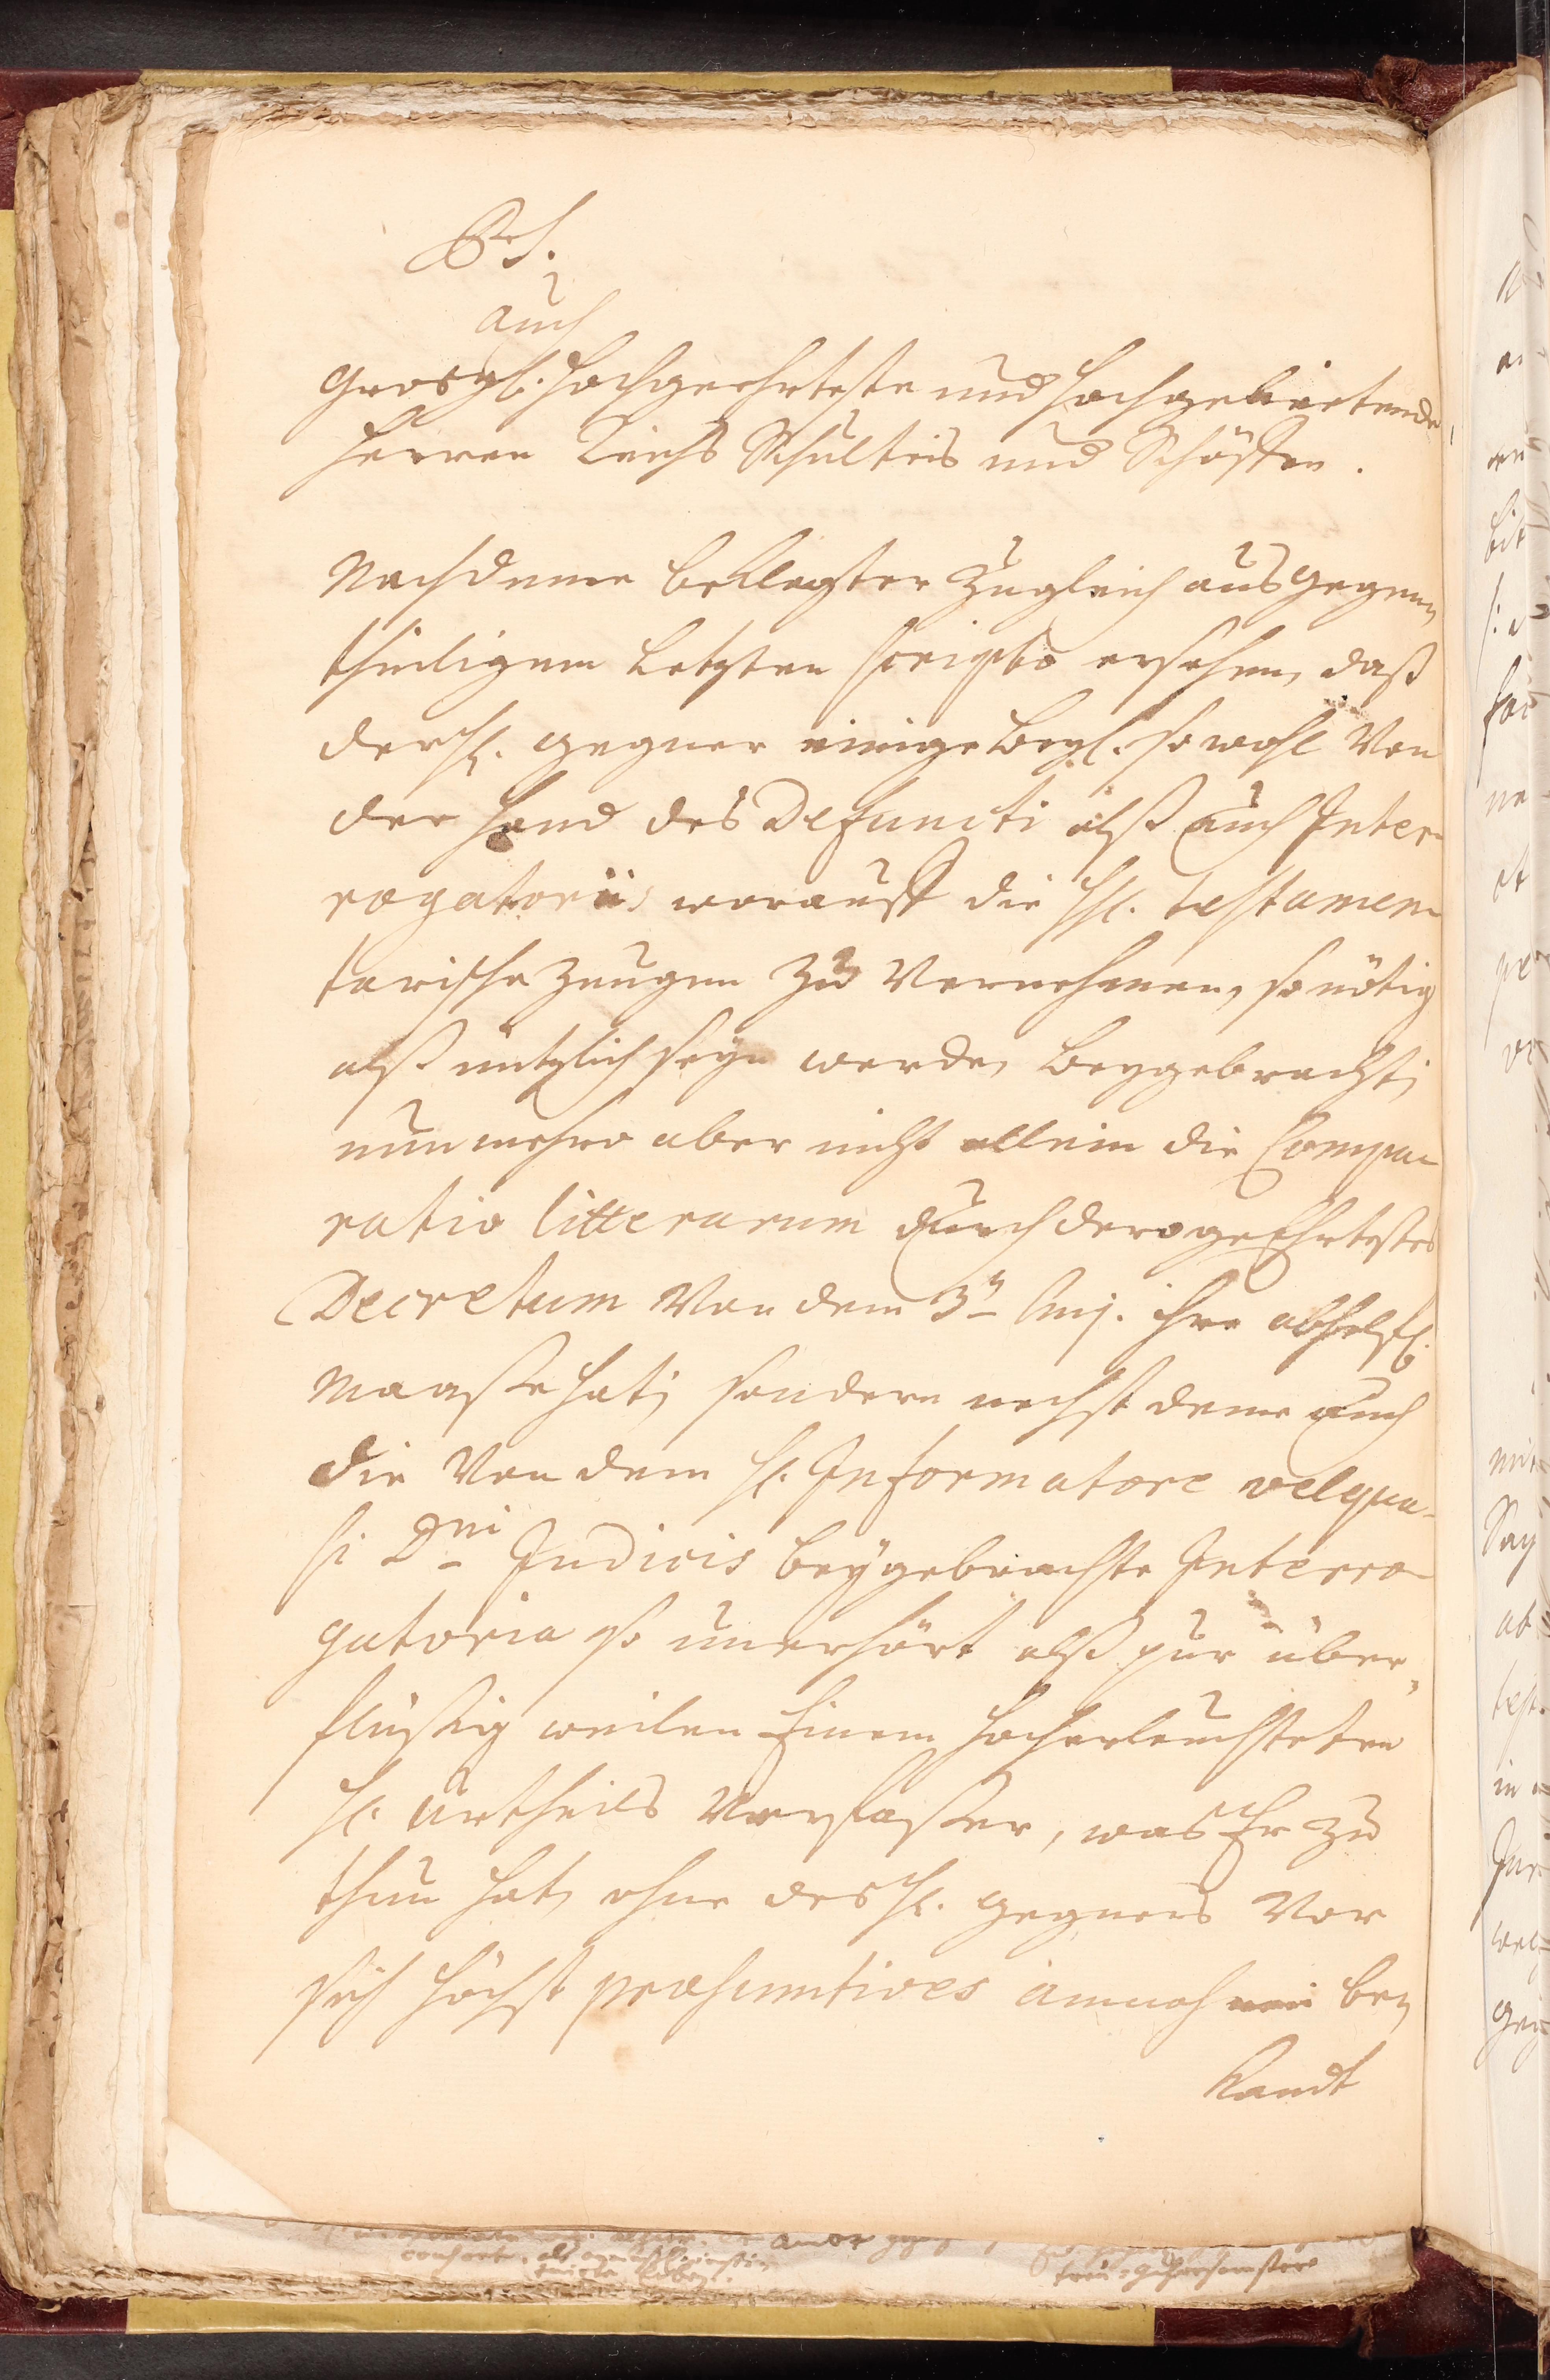 P. S.
auch
Grosgl. Hochgeehrteste und Hochgebietende
Herren Reichs Schulteis und Schöffen.
Nachdeme beklagter zugleich aus gegen-
theiligem letzten scripto ersehen, daß
der H. gegner einige beyl. so wohl von
der Hand des Defuncti alß auch Inter-
rogatoriis worauff die H. testamen-
tarische Zeugen zu vernehmen, so nötig
alß nützlich seyn werden beygebracht;
nunmehro aber nicht allein die Compa-
ratio litterarum durch dero geEhrtestes
Decretum von dem 3n huj. ihre abhelfl.
Maaße hat; sondern nechst deme auch
die von dem H. Informatore vel qua-
si Dni Judicis beygebrachte Interro-
gatoria so unerhört alß pur über-
flüssig weilen Einem Hocherleuchteten
H. Urtheils Verfasser, was Er zu
thun hat, ohne des H. gegners vor
sich höchst præsumtives bey
kandt
treu-gehorsamster